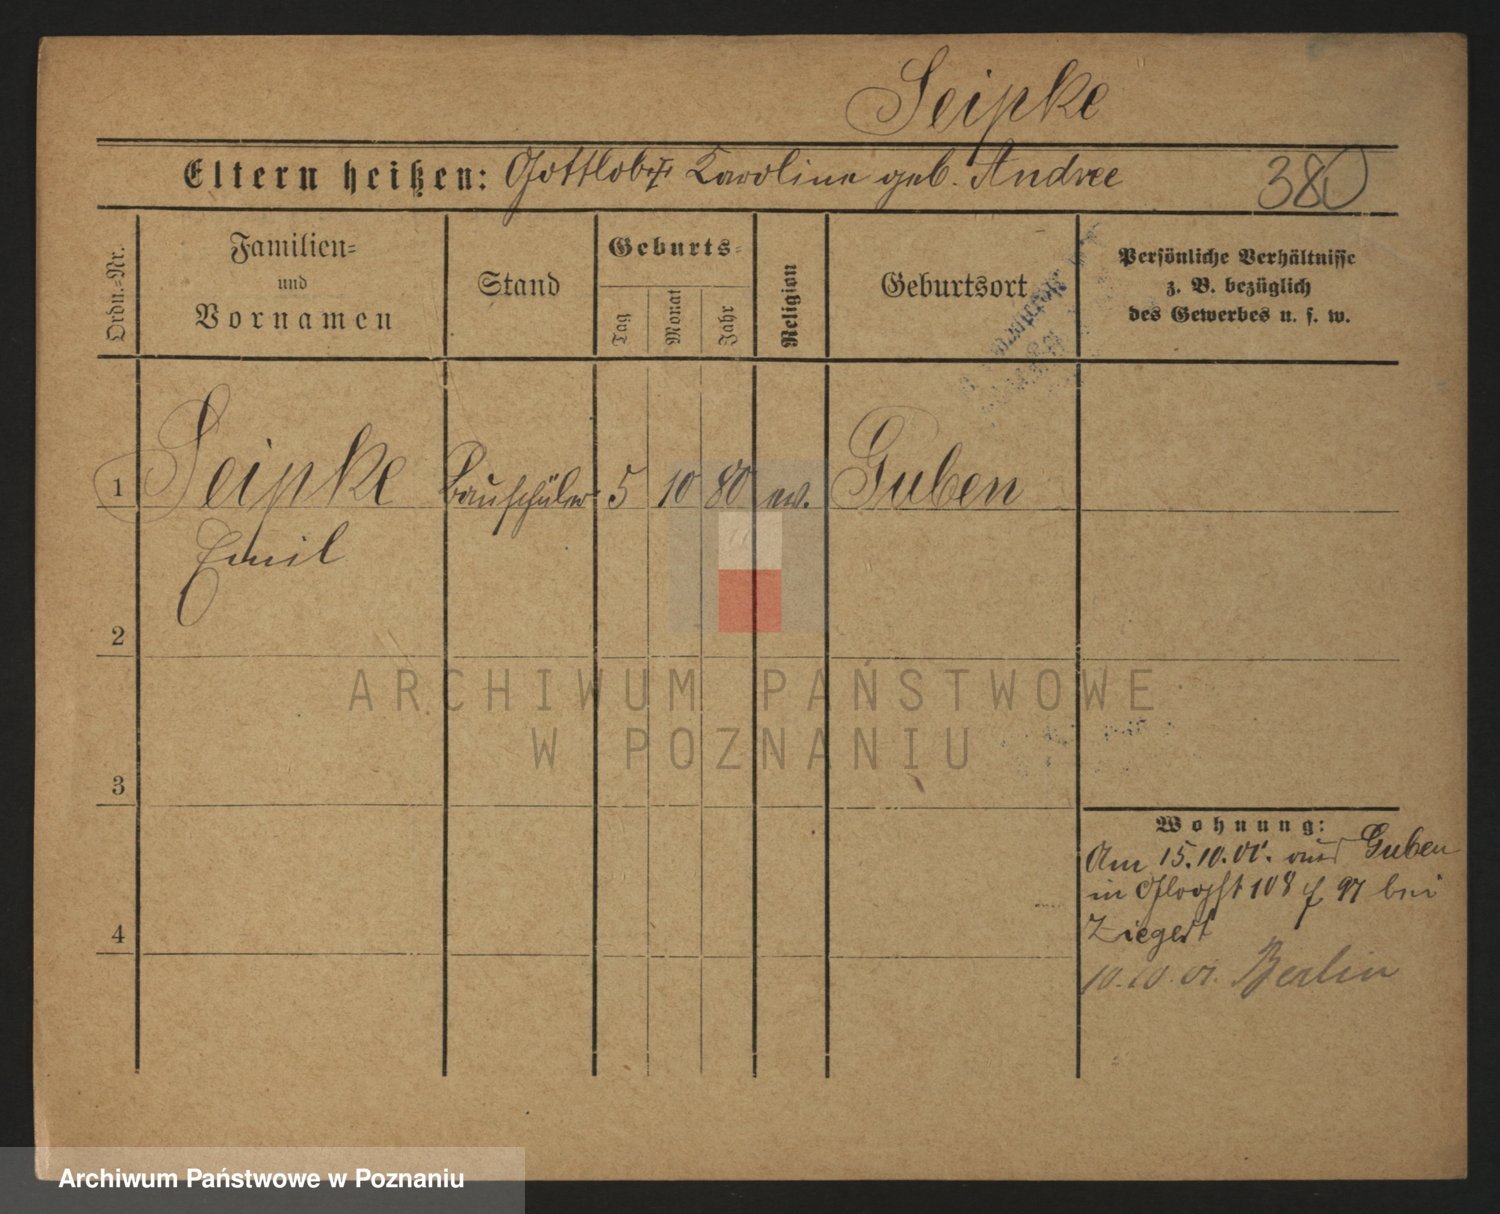 Seipke
Eltern heißen: Gottlob Karoline geb. Andree 380
Ordn.-Nr.
Familien- und Vornamen
Stand
Geburts-
Tag
Monat
Jahr
Religion
Geburtsort
Persönliche Verhältnisse
z. B. bezüglich
des Gewerbes u. s. w.
1 Seipke Bauschüler 5 10 80 ev. Guben
Emil
2
3
4
ARCHIWUM PAŃSTWOWE
W POZNANIU
Wohnung:
Am 15.10.00. aus Guben
in 108 97 bei
Ziegert
10.10.01. Berlin
Archiwum Państwowe w Poznaniu